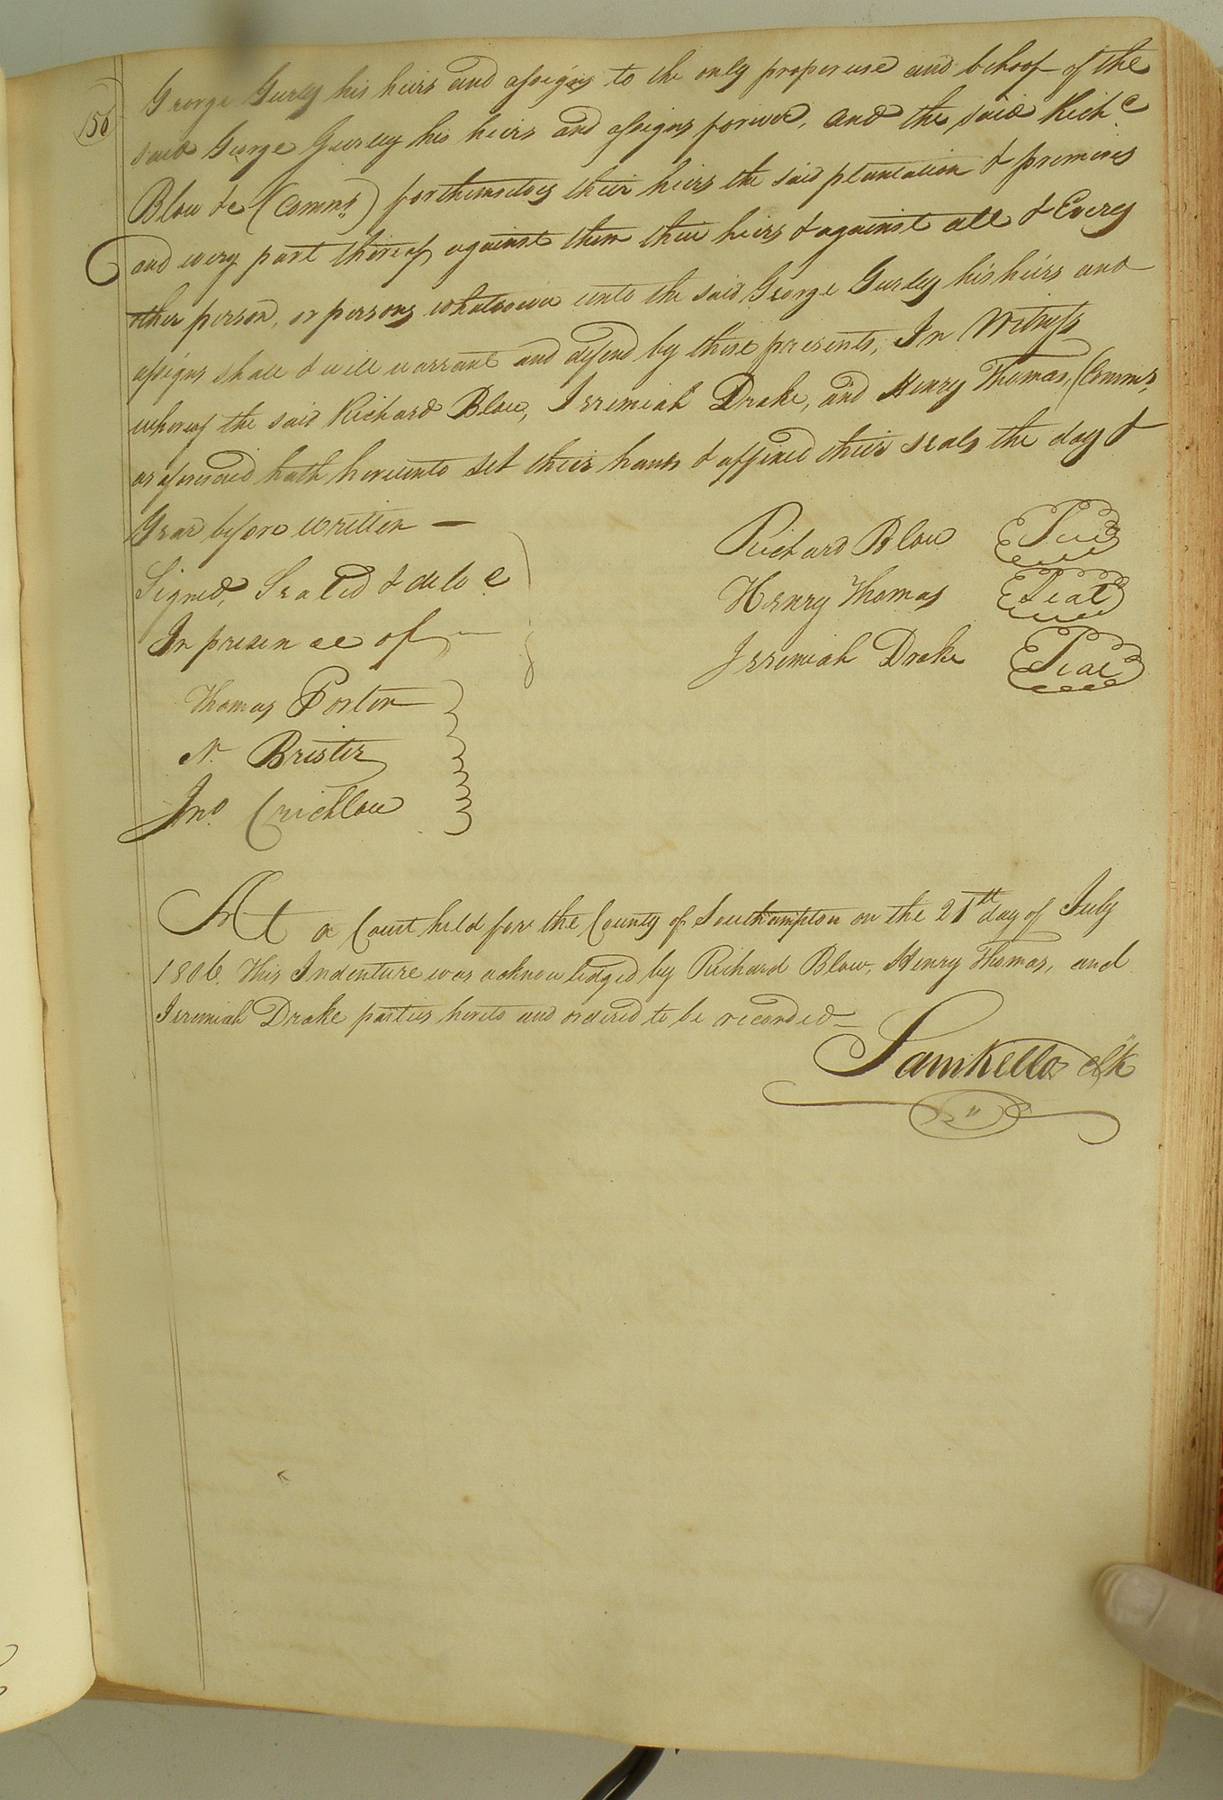 156
George Gurley his heirs and assigns to the only proper use and behoof of the
said George Gurley his heirs and assigns forever, and the said Richd
Blow &c (Comrs) for themselves their heirs the said plantation & premises
and every part thereof against them their heirs & against all & Every
other person, or persons whatsoever unto the said George Gurley his heirs and
assigns shall & will warrant and defend by these presents, In Witness
whereof the said Richard Blow, Jeremiah Drake, and Henry Thomas, (Comrs
as aforesaid hath hereunto set their hands & affixed their seals the day &
Year before written —
Richard Blow Seal
Signed, Sealed & deld
Henry Thomas Seal
In presence of —
Jeremiah Drake Seal
Thomas Porter
N. Brister
Jno Crichlow
At a Court held for the County of Southampton on the 21th day of July
1806. This Indenture was acknowledged by Richard Blow, Henry Thomas, and
Jeremiah Drake parties hereto and ordered to be recorded —
Saml Kello Clk